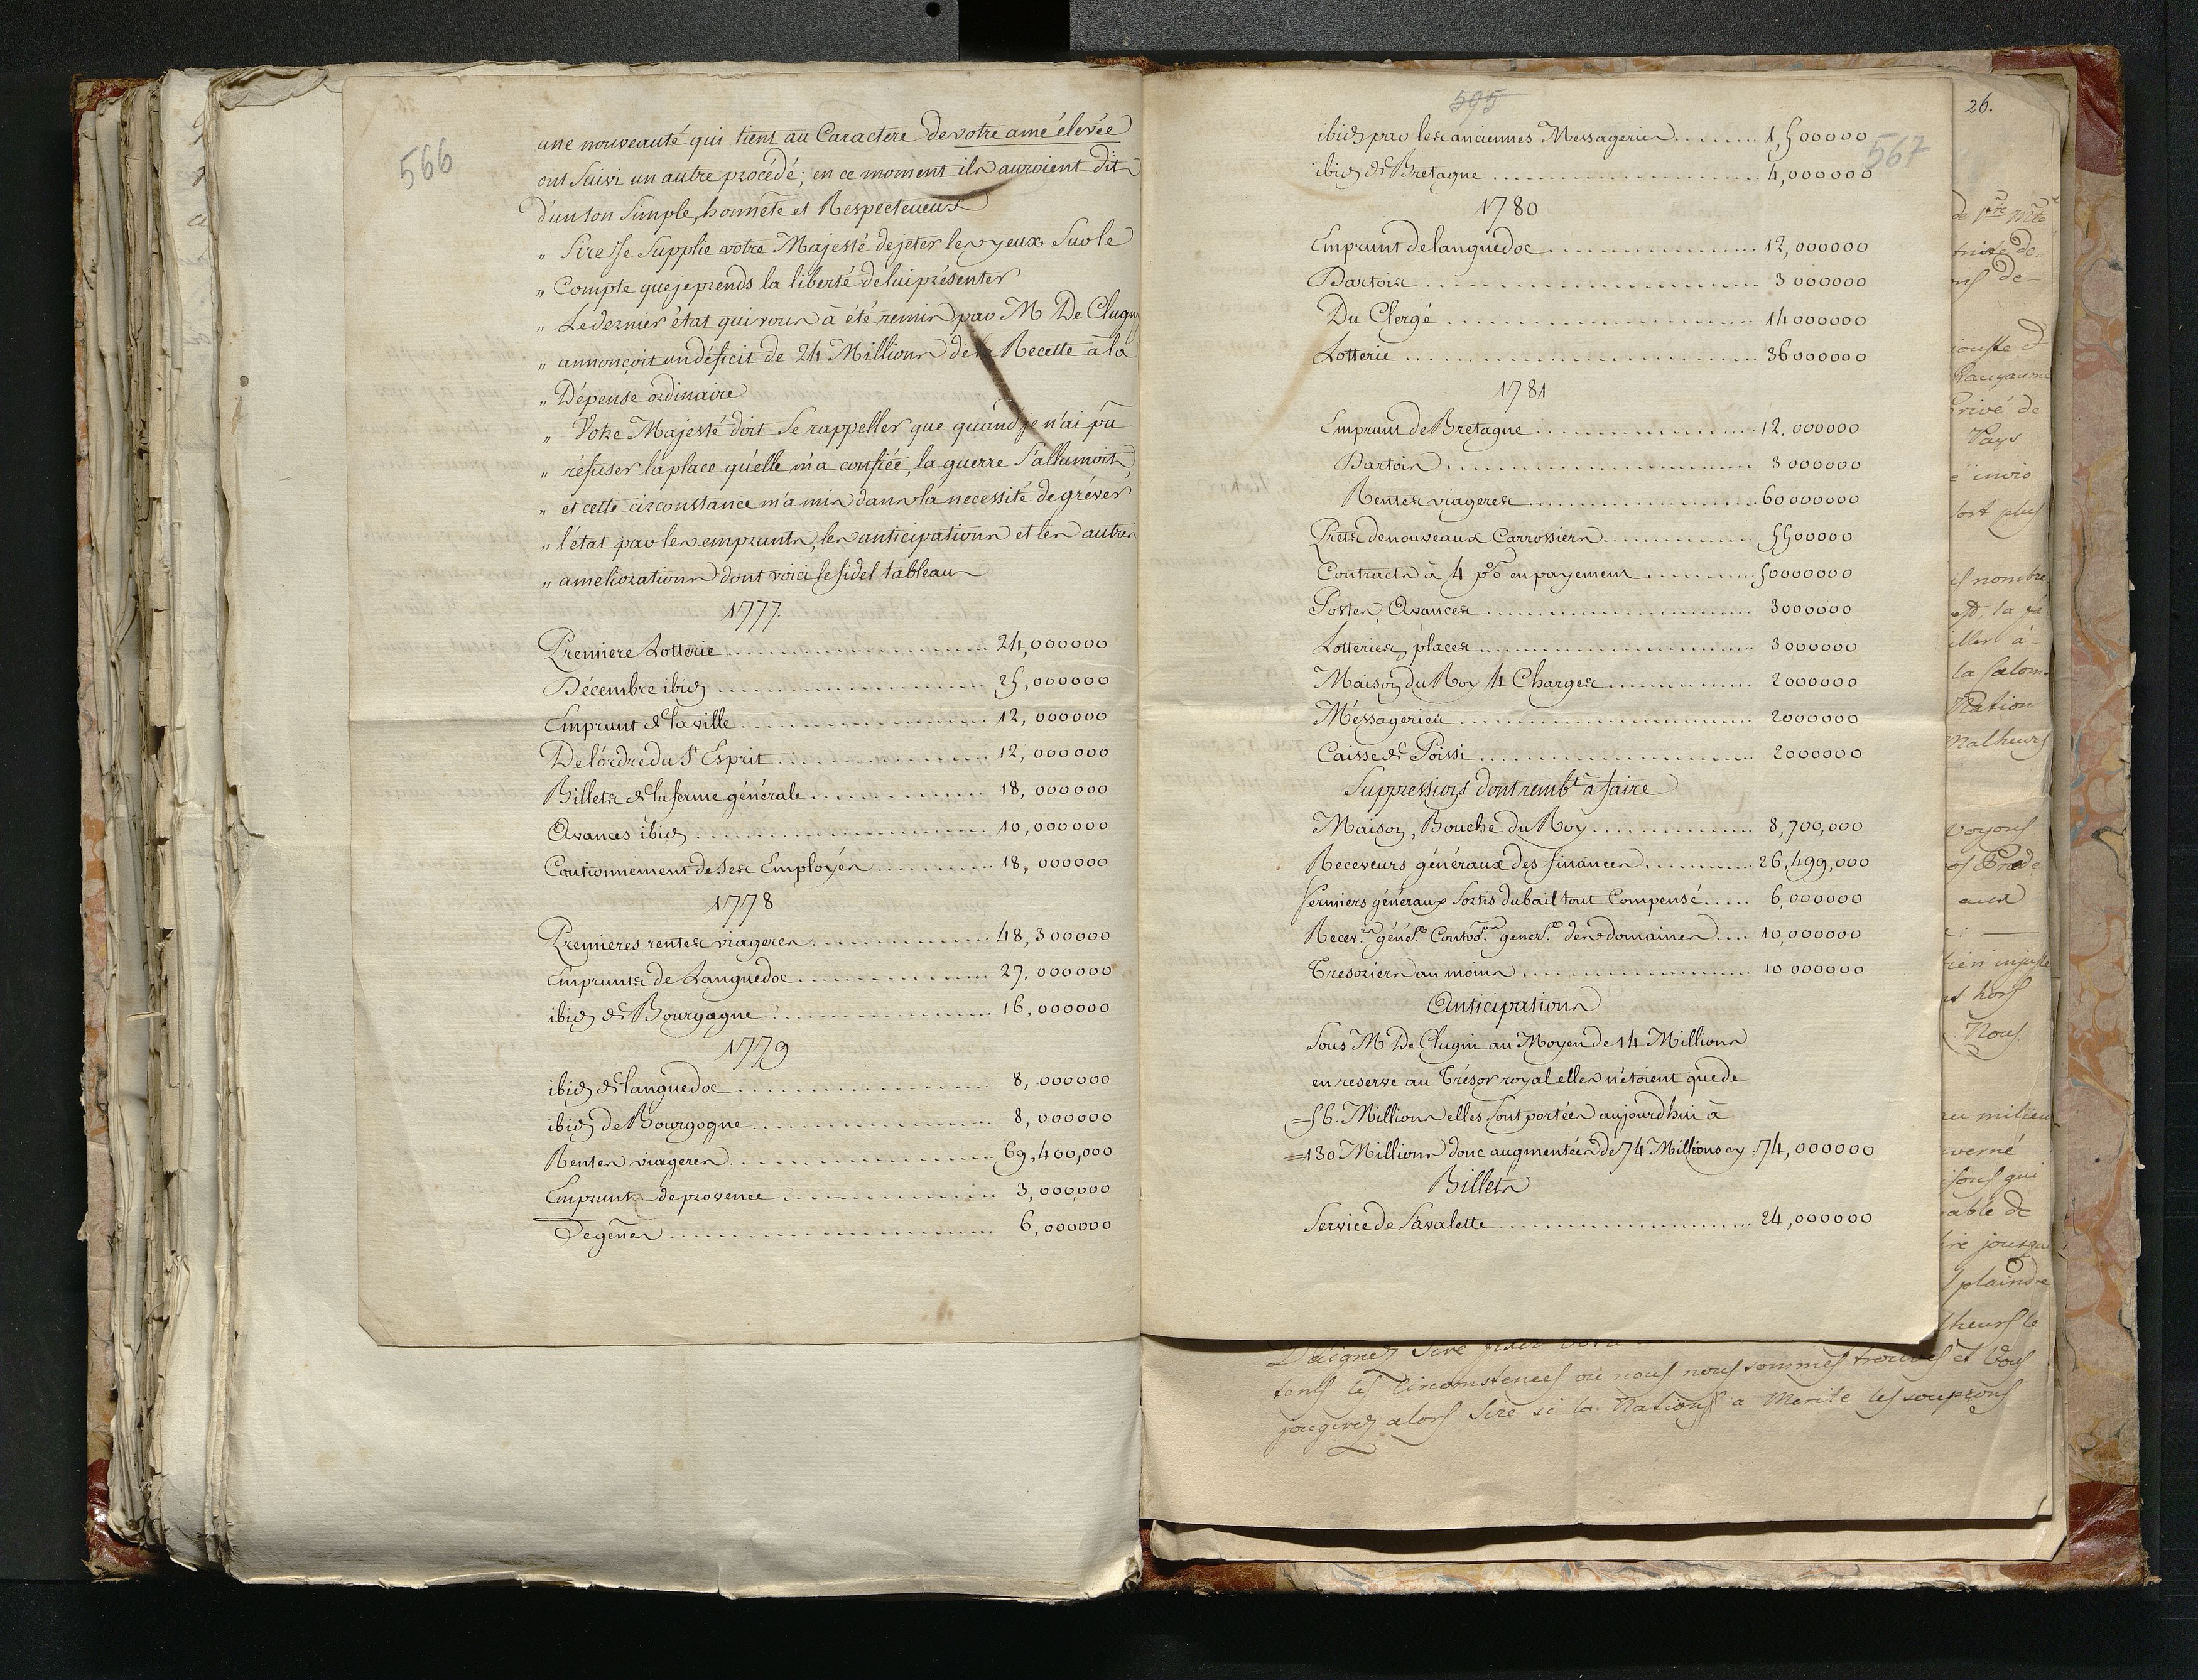 566
une nouveauté qui tient au Caractere de votre ame élevée
ont Suivi un autre procédé; en ce moment ils auroient dit
d'un ton Simple, honnête et Respectueux
„ Sire Je Supplie votre Majesté de jeter les yeux Sur le
„ Compte que je prends la liberté de lui présenter
„ Le dernier état qui vous à été remis par M. De Clugny
„ annonçoit un déficit de 24 Millions de la Recette à la
„ Dépense ordinaire
„ Votre Majesté doit Se rappeller que quand je n'ai pu
„ réfuser la place qu'elle m'a confiée, la guerre S'allumoit,
„ et cette circonstance m'a mis dans la necessité de gréver
„ l'état par les emprunts, les anticipations et les autres
„ ameliorations dont voici le fidel tableau
1777.
Premiere Lotterie 24,000000
Décembre ibid 25,000000
Emprunt de la ville 12,000000
De l'ordre du St Esprit 12,000000
Billets de la ferme générale 18,000000
Avances ibid 10,000000
Cautionnement de Ses Employés 18,000000
1778
Premières rentes viageres 48,300000
Emprunts de Languedoc 27,000000
ibid de Bourgogne 16,000000
1779
ibid de languedoc 8,000000
ibid de Bourgogne 8,000000
Rentes viageres 69,400,000
Emprunt de provence 3,000,000
De gênes 6,000000
595
567
ibid par les anciennes Messageries 1,500000
ibid de Bretagne 4,000000
1780
Emprunt de languedoc 12,000000
D'artois 3000000
Du Clergé 14000000
Lotterie 36000000
1781
Emprunt de Bretagne 12,000000
D'artois 3000000
Rentes viageres 60000000
Prêts de nouveaux Carrossiers 5500000
Contracts à 4 p% en payement 5000000
Postes, Avances 3000000
Lotteries, places 3000000
Maison du Roy 4 Charges 2000000
Méssageries 2000000
Caisse de Poissi 2000000
Suppressions dont rembt à faire
Maison, Bouche du Roy 8,700,000
Receveurs généraux des finances 26,499,000
Fermiers généraux Sortis du bail tout Compensé 6,000000
Recev.rs géné.x Contro.rs gener.x des domaines 10,000000
Tresoriers au moins 10000000
Anticipations
Sous M. De Clugni au Moyen de 14 Millions
en reserve au Trésor royal elles n'étoient que de
=56. Millions elles sont portées aujourd'hui à
=130 Millions donc augmentées de 74 Millions cy 74,000000
Billets
Service de Savalette 24,000000
26.
de
Royaume
privé de
Pays
sort plus
nombre
Nation
Malheurs
voyons
hors
Nous
au milieu
able de
plaindre
Daignez Sire
tems les Circonstences où nous nous sommes trouvés et Vous
jougerez alors Sire si la Nations a Merité les soupçons